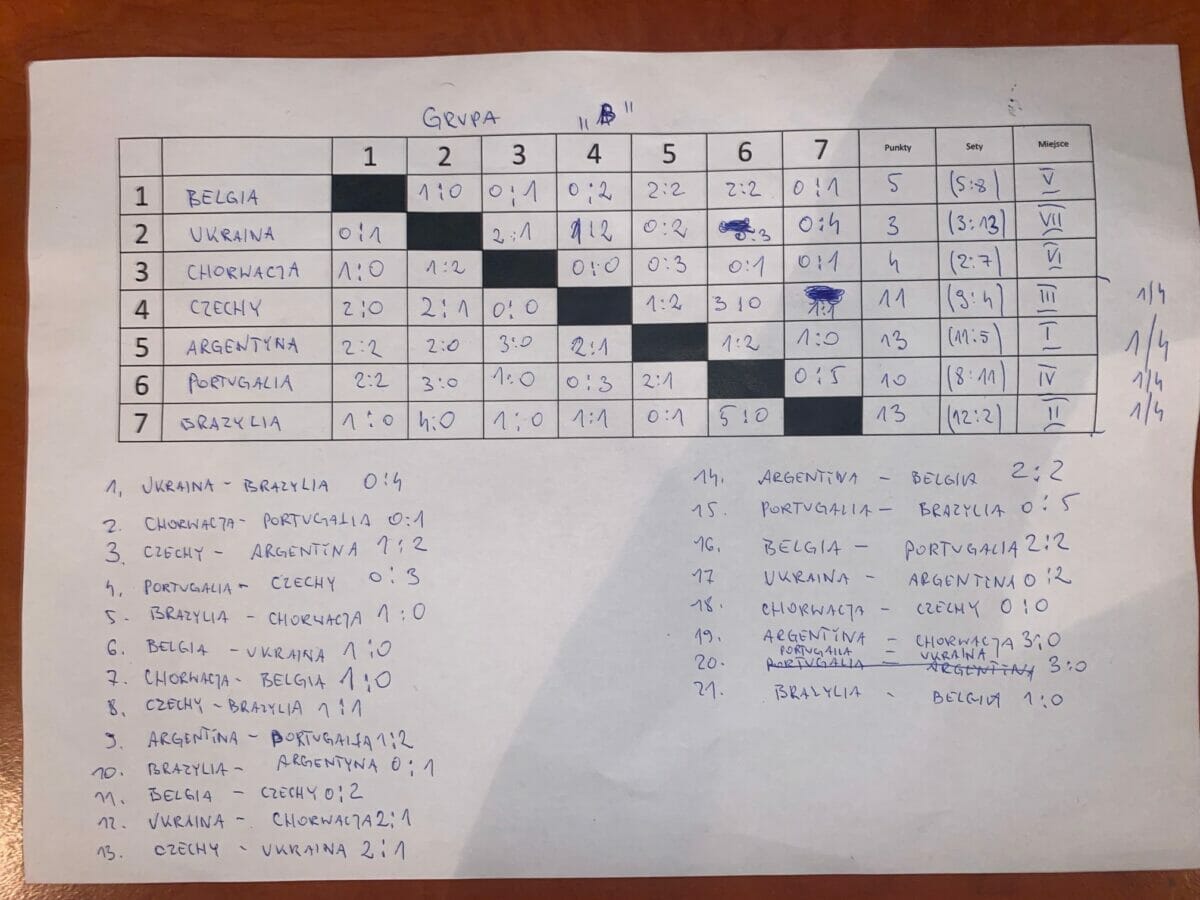 GRUPA „B"
1 2 3 4 5 6 7 Punkty Sety Miejsce
1 BELGIA 1:0 0:1 0:2 2:2 2:2 0:1 5 (5:8) V
2 UKRAINA 0:1 2:1 1:2 0:2 0:3 0:4 3 (3:13) VII
3 CHORWACJA 1:0 1:2 0:0 0:3 0:1 0:1 4 (2:7) VI
4 CZECHY 2:0 2:1 0:0 1:2 3:0 1:1 11 (9:4) III 1/4
5 ARGENTYNA 2:2 2:0 3:0 2:1 1:2 1:0 13 (11:5) I 1/4
6 PORTUGALIA 2:2 3:0 1:0 0:3 2:1 0:5 10 (8:11) IV 1/4
7 BRAZYLIA 1:0 4:0 1:0 1:1 0:1 5:0 13 (12:2) II 1/4
1. UKRAINA - BRAZYLIA 0:4
2. CHORWACJA - PORTUGALIA 0:1
3. CZECHY - ARGENTINA 1:2
4. PORTUGALIA - CZECHY 0:3
5. BRAZYLIA - CHORWACJA 1:0
6. BELGIA - UKRAINA 1:0
7. CHORWACJA - BELGIA 1:0
8. CZECHY - BRAZYLIA 1:1
9. ARGENTINA - PORTUGALIA 1:2
10. BRAZYLIA - ARGENTYNA 0:1
11. BELGIA - CZECHY 0:2
12. UKRAINA - CHORWACJA 2:1
13. CZECHY - UKRAINA 2:1
14. ARGENTINA - BELGIA 2:2
15. PORTUGALIA - BRAZYLIA 0:5
16. BELGIA - PORTUGALIA 2:2
17 UKRAINA - ARGENTINA 0:2
18. CHORWACJA - CZECHY 0:0
19. ARGENTINA - CHORWACJA 3:0
PORTUGALIA - UKRAINA
20. PORTUGALIA - ARGENTINY 3:0
21. BRAZYLIA - BELGIA 1:0